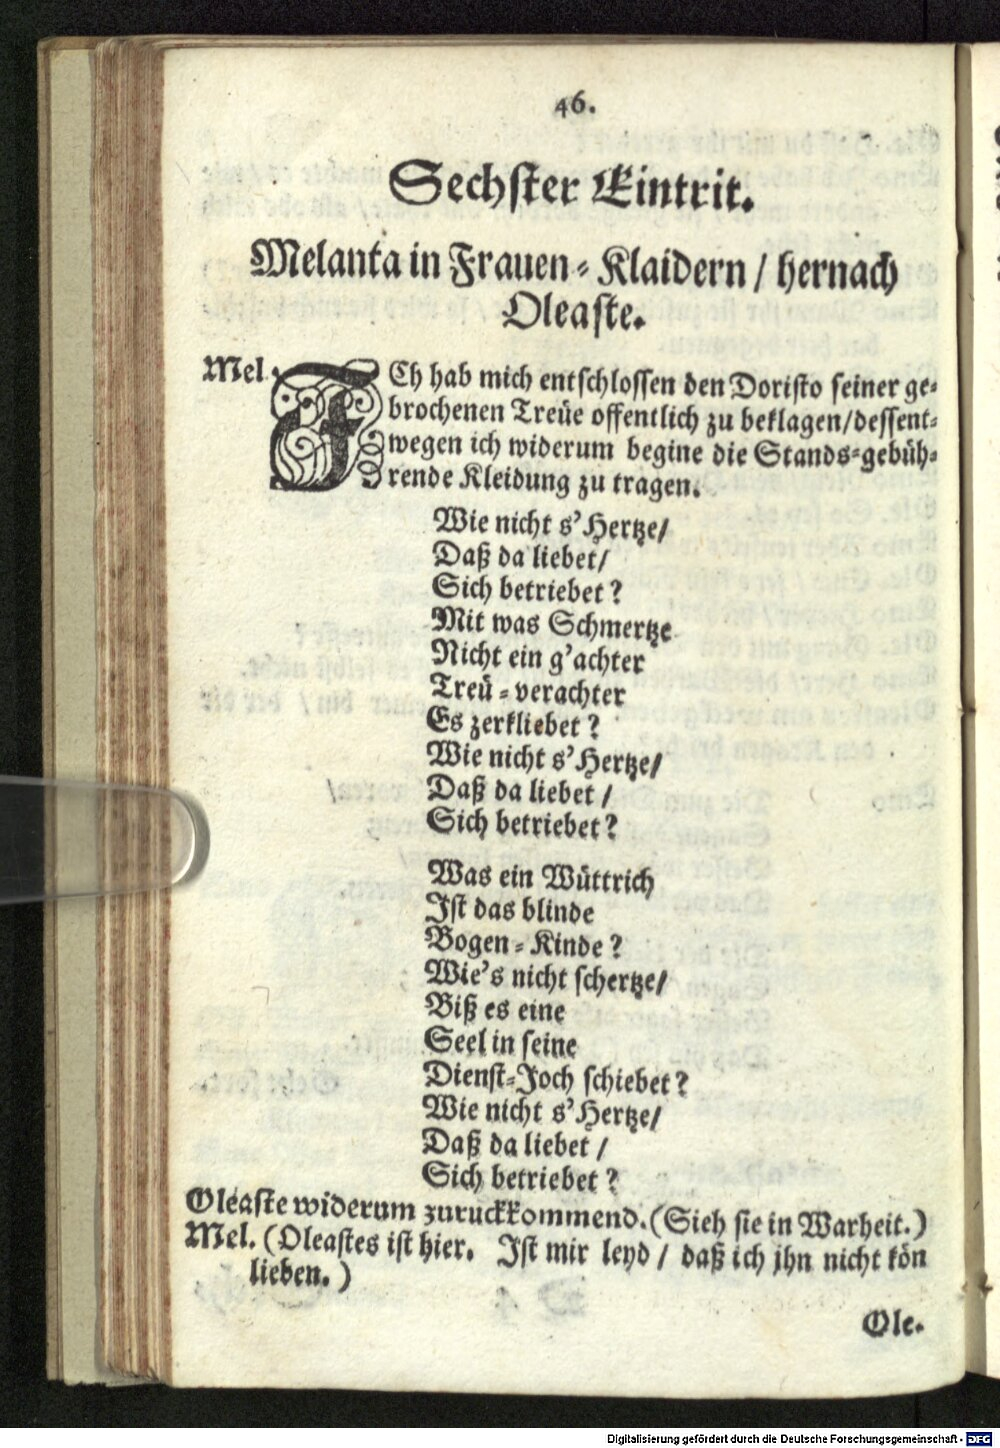 46.
Sechster Eintrit.
Melanta in Frauen-Klaidern / hernach
Oleaste.
Mel. ICh hab mich entschlossen den Doristo seiner ge-
brochenen Treüe offentlich zu beklagen/dessent-
wegen ich widerum begine die Stands-gebüh-
rende Kleidung zu tragen.
Wie nicht s'Hertze/
Daß da liebet/
Sich betriebet?
Mit was Schmertze
Nicht ein g'achter
Treü-verachter
Es zerkliebet?
Wie nicht s'Hertze/
Daß da liebet /
Sich betriebet?
Was ein Wüttrich
Ist das blinde
Bogen-Kinde?
Wie's nicht schertze/
Biß es eine
Seel in seine
Dienst-Joch schiebet?
Wie nicht s'Hertze/
Daß da liebet /
Sich betriebet?
Oleaste widerum zuruckkommend.(Sieh sie in Warheit.)
Mel. (Oleastes ist hier. Ist mir leyd / daß ich jhn nicht kön
lieben.)
Ole.
Digitalisierung gefördert durch die Deutsche Forschungsgemeinschaft - DFG